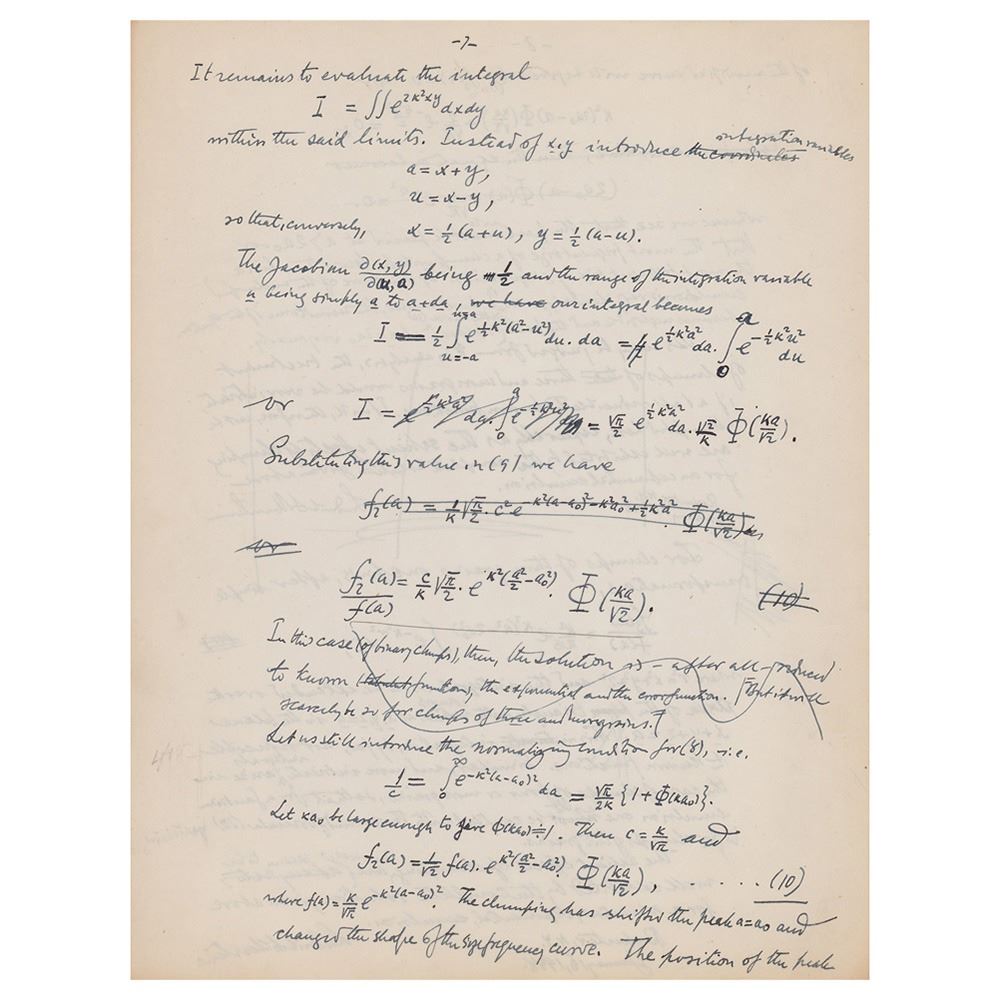 -7-
It remains to evaluate the integral
I = ∫∫ e^{2κ²xy} dx dy
within the said limits. Instead of x, y introduce the coordinates integration variables
a = x+y,
u = x-y,
so that, conversely, x = ½ (a+u), y = ½ (a-u).
The Jacobian ∂(x,y)/∂(u,a) being ½ and the range of the integration variable
a being simply a to a+da, we have our integral becomes
I = ½ ∫_{u=-a}^{u=a} e^{½κ²(a²-u²)} du. da = e^{½κ²a²} da. ∫_0^a e^{-½κ²u²} du
or I = e^{½κ²a²} da. ∫_0^a e^{-½κ²u²} = √π/2 e^{½κ²a²} da. √2/κ Φ(κa/√2).
Substituting this value in (9) we have
f₂(a) = 1/κ √π/2. c² e^{-κ²(a-a₀)²-κ²a₀²+½κ²a²}. Φ(κa/√2)
or
f₂(a)/f(a) = c/κ √π/2. e^{κ²(a²/2-a₀²)}. Φ(κa/√2). (10)
In this case (of binary clumps), then, the solution is - after all - reduced
to known functions, the exponential and the error function. [But it will
scarcely be so for clumps of three and more grains.]
Let us still introduce the normalizing condition for (8), i.e.
1/c = ∫_0^∞ e^{-κ²(a-a₀)²} da = √π/2κ {1+Φ(κa₀)}.
Let κa₀ be large enough to give Φ(κa₀) ≐ 1. Then c = κ/√π and
f₂(a) = 1/√2 f(a). e^{κ²(a²/2-a₀²)}. Φ(κa/√2), . . . . . . (10)
where f(a) = κ/√π e^{-κ²(a-a₀)²}. The clumping has shifted the peak a=a₀ and
changed the shape of the size frequency curve. The position of the peak